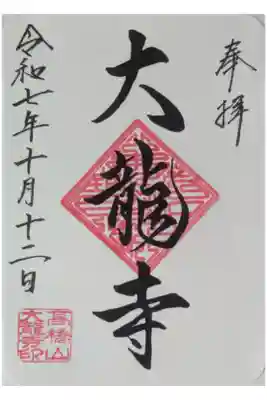 奉拝
大龍寺
令和七年十月十二日
高橋山
大龍寺印